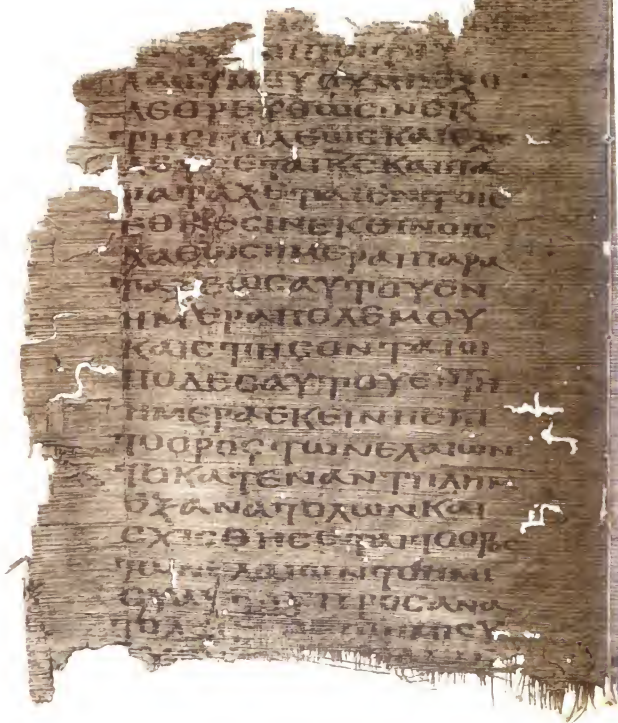 ΤΗϹΠΟΛΕΩϹΚΑΙΕΞΕ
ΕΤΑΙΚϹΚΑΙΠΑ
ΡΑΤΑΞΕΤΑΙΕΝΤΟΙϹ
ΕΘΝΕϹΙΝΕΚΕΙΝΟΙϹ
ΚΑΘΩϹΗΜΕΡΑΠΑΡΑ
ΤΑΞΕΩϹΑΥΤΟΥΕΝ
ΗΜΕΡΑΠΟΛΕΜΟΥ
ΚΑΙϹΤΗϹΟΝΤΑΙΟΙ
ΠΟΔΕϹΑΥΤΟΥΕΝΤΗ
ΗΜΕΡΑΕΚΕΙΝΗΕΠΙ
ΤΟΟΡΟϹΤΩΝΕΛΑΙΩΝ
ΤΟΚΑΤΕΝΑΝΤΙΙΛΗΜ
ΕΞΑΝΑΤΟΛΩΝΚΑΙ
ϹΧΙϹΘΗϹΕΤΑΙΤΟΟΡΟϹ
ΤΩΝΕΛΑΙΩΝΤΟΗΜΙ
ϹΥΑΥΤΟΥΠΡΟϹΑΝΑ